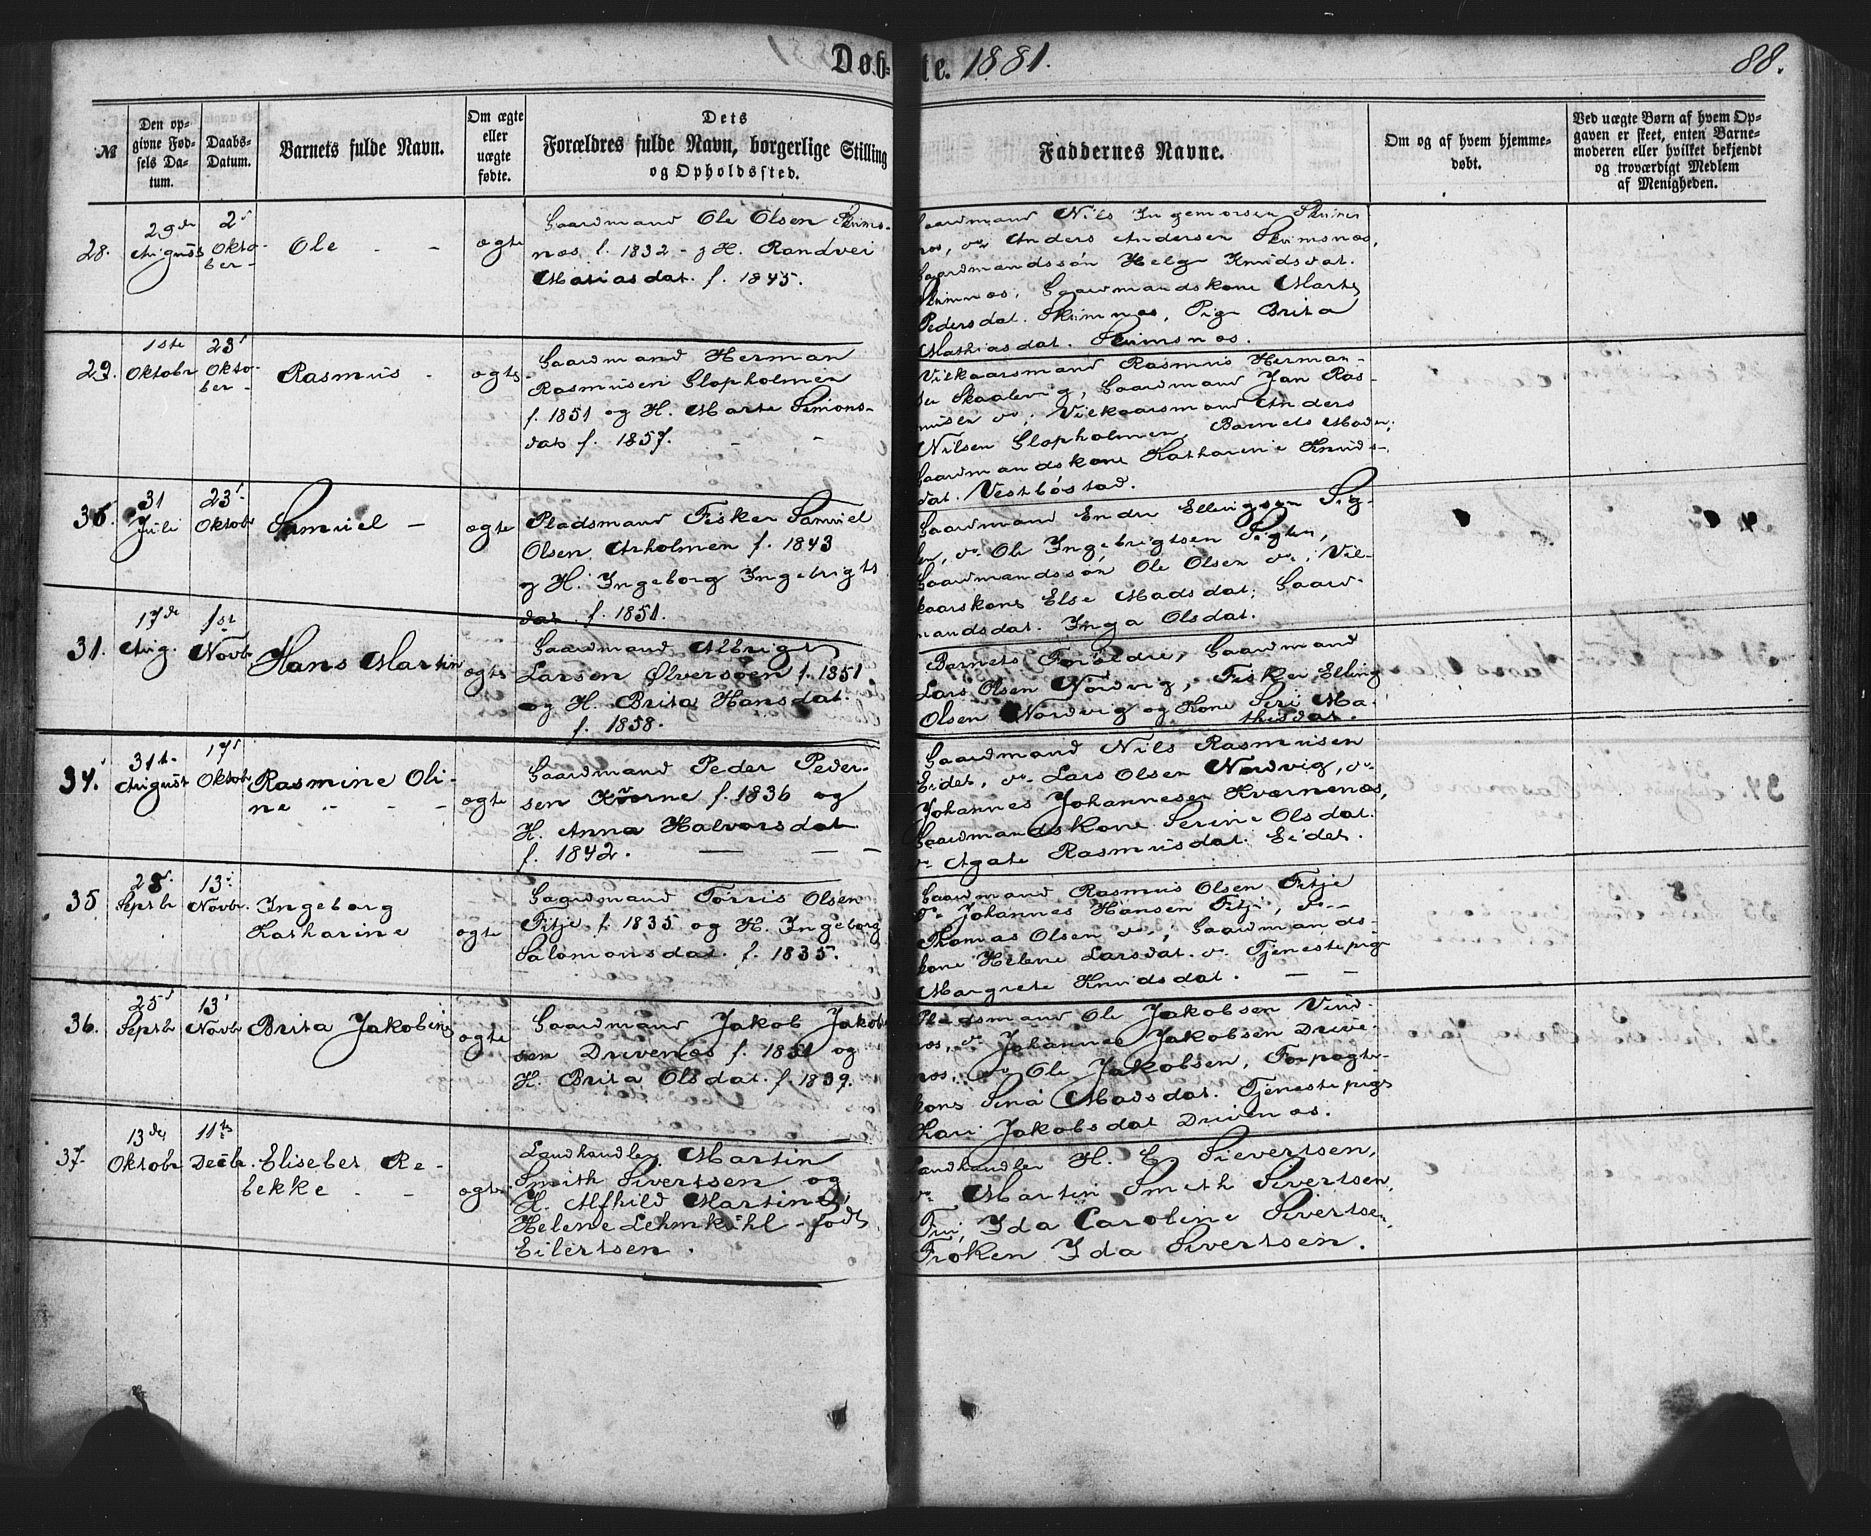 Døbte. 1881.
88.
№
Den opgivne Fødsels Datum.
Daabs-Datum.
Barnets fulde Navn.
Om ægte eller uægte fødte.
Dets Forældres fulde Navn, borgerlige Stilling og Opholdssted.
Faddernes Navne.
Om og af hvem hjemmedøbt.
Ved uægte Børn af hvem Opgaven er skeet, enten Barnemoderen eller hvilket bekjendt og troværdigt Medlem af Menigheden.
28.
29de August
2d Oktober
Ole - -
ægte
Gaardmand Ole Olsen
næs f. 1832 - H. Randvei
Matiasdat. f. 1845.
Gaardmand Nils Ingemorsen
næs, do Anders Andersen
Gaardmandssøn Helge Knudsdat.
Gaardmandskone Marte
Pedersdat. Pige Brita
Mathiasdat.
29.
1ste Oktobr
23d Oktober
Rasmus -
ægte
Gaardmand Herman
Rasmusen Glopholmen
f. 1851 og H. Marte Simons-
dat f. 1857. - -
Vilkaarsmand Rasmus Herman-
sen Skaalevig, Gaardmand Jan Ras-
musen do; Vilkaarsmand Anders
Nilsen Glopholmen, Barnets Moder,
Gaardmandskone Katharine Knuds-
dat. Vestbøstad.
31 Juli
23d Oktobr
Samuel -
ægte
Pladsmand Fisker Samuel
Olsen Arholmen f. 1843
og H. Ingeborg Ingebrigts
dat. f. 1851.
Gaardmand Endre Ellingsen
do Ole Ingebrigtsen
Gaardmandssøn Ole Olsen do, Vil-
kaarskone Else Madsdat; Gaard-
mandsdat. Inga Olsdat.
31.
17de Aug.
1st Novbr
Hans Martin
ægte
Gaardmand Albrigt
Larsen Ølversøen f. 1851
og H. Brita Hansdat.
f. 1858.
Barnets Forældre, Gaardmand
Lars Olsen Nordvig, Fisker Elling
Olsen Nordvig og Kone Seri Ma-
thisdat.
34.
31t August
17d Oktobr
Rasmine Oli-
ne - - -
ægte
Gaardmand Peder Peder-
sen Kværne f. 1836 og
H. Anna Halvorsdat
f. 1842. - - -
Gaardmand Nils Rasmusen
Eidet, do Lars Olsen Nordvig, do
Johannes Johannesen Kværnenæs,
Gaardmandskone Serine Olsdat.
do Agate Rasmusdat. Eidet.
35
Septbr
13d Novbr.
Ingeborg
Katharine
ægte
Gaardmand Torris Olsen
Fitje f. 1835 og H. Ingeborg
Salomonsdat. f. 1835.
Gaardmand Rasmus Olsen Fitje
do Johannes Hansen Fitje, do -
Thomas Olsen do, Gaardmands-
kone Helene Larsdat. do Tjenestepige
Margrete Knudsdat. - -
36.
25d Septbr
13d Novbr
Brita Jakobine
ægte
Gaardmand Jakob Jakob
sen Drivenæs f. 1851 og
H. Brita Olsdat. f. 1839.
Pladsmand Ole Jakobsen Vind-
næs, do Johannes Jakobsen Drive-
næs, do Ole Jakobsen, Forpagter-
kone Sina Madsdat. Tjenestepige
Kari Jakobsdat Drivenæs.
37.
13de Oktobr
11te Decbr.
Elisebet Re-
bekke - -
ægte
Landhandler Martin
Smith Sivertsen og
H. Alfhild Martine
Helene Lehmkuhl - født
Eilertsen.
Landhandler H. C. Sievertsen,
do Martin Smith Sivertsen,
Fru, Ida Caroline Sivertsen,
Frøken Ida Sivertsen.